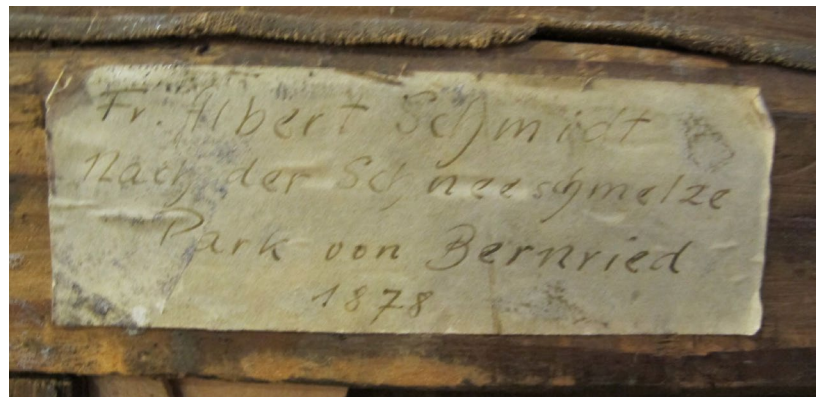 Fr. Albert Schmidt
Nach der Schneeschmelze
Park von Bernried
1878